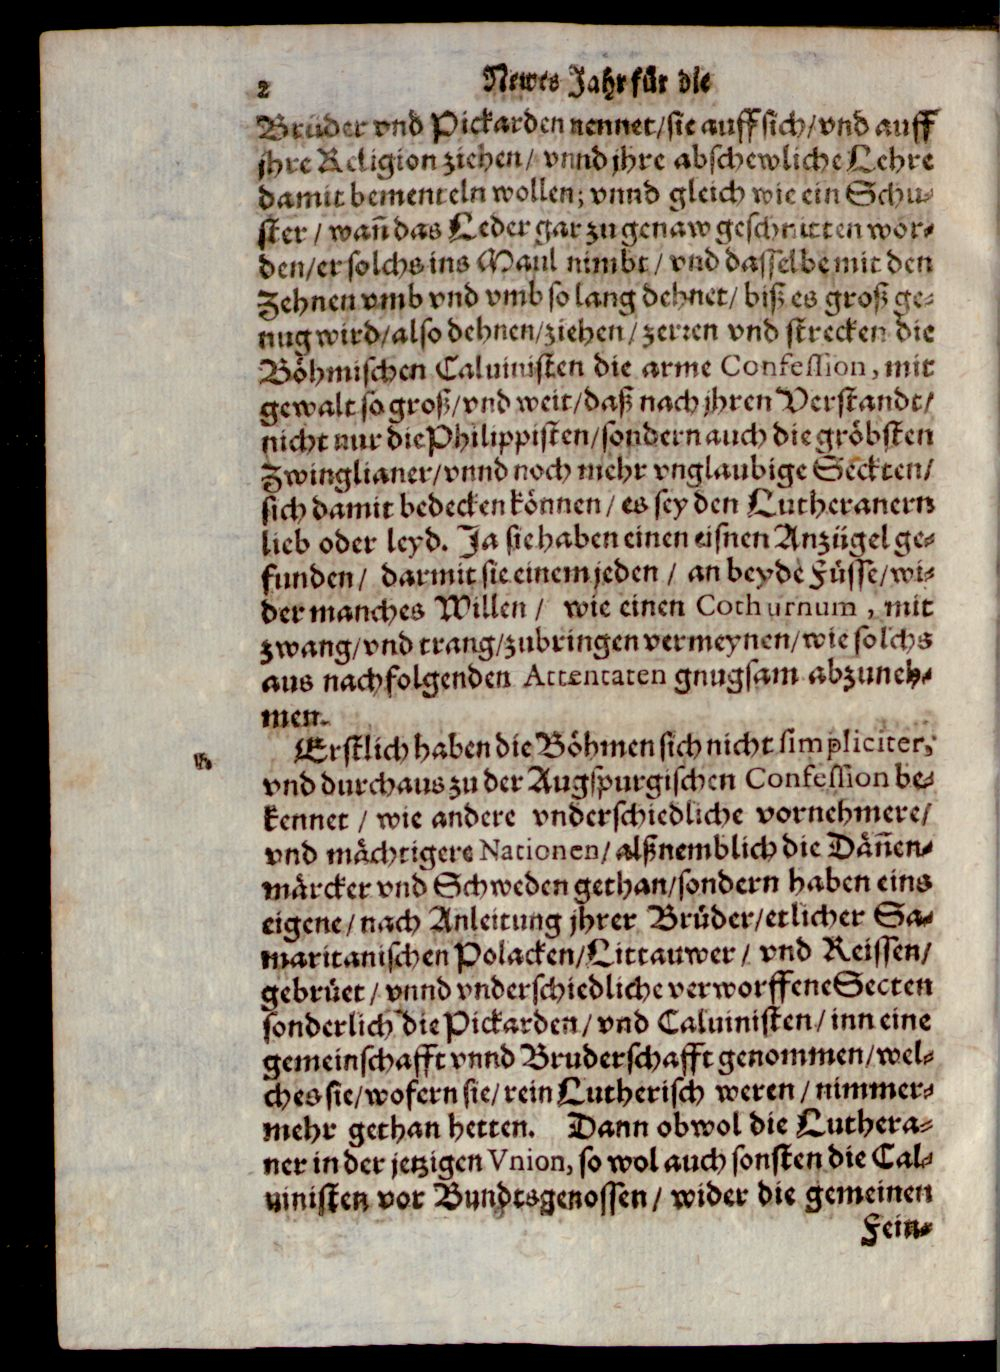 2 Newes Jahr für die
Brüder vnd Pickarden nennet/sie auff sich/vnd auff
jhre Religion ziehen/ vnnd jhre abschewliche Lehre
damit bementeln wollen; vnnd gleich wie ein Schu-
ster / wañ das Leder gar zu genaw geschnitten wor-
den/er solchs ins Maul nimbt / vnd dasselbe mit den
Zehnen vmb vnd vmb so lang dehnet/ biß es groß ge-
nug wird/also dehnen/ziehen/ zerren vnd strecken die
Böhmischen Caluinisten die arme Confession, mit
gewalt so groß/vnd weit/daß nach jhren Verstandt/
nicht nur die Philippisten/sondern auch die gröbsten
Zwinglianer/vnnd noch mehr vnglaubige Seckten/
sich damit bedecken können / es sey den Lutheranern
lieb oder leyd. Ja sie haben einen eisnen Anzügel ge-
funden/ darmit sie einem jeden / an beyde Füsse/wi-
der manches Willen / wie einen Cothurnum, mit
zwang/vnd trang/zubringen vermeynen/wie solchs
aus nachfolgenden Attentaten gnugsam abzuneh-
men.
Erstlich haben die Böhmen sich nicht simpliciter,
vnd durchaus zu der Augspurgischen Confession be-
kennet / wie andere vnderschiedliche vornehmere/
vnd mächtigere Nationen/ alß nemblich die Däñen-
märcker vnd Schweden gethan/sondern haben eins
eigene/nach Anleitung jhrer Brüder/etlicher Sa-
maritanischen Polacken/Littauwer / vnd Reissen/
gebrüet / vnnd vnderschiedliche verworffene Secten
sonderlich die Pickarden/ vnd Caluinisten/ inn eine
gemeinschafft vnnd Bruderschafft genommen/wel-
ches sie/wofern sie/ rein Lutherisch weren / nimmer-
mehr gethan hetten. Dann obwol die Luthera-
ner in der jetzigen Vnion, so wol auch sonsten die Cal-
uinisten vor Bundtsgenossen / wider die gemeinen
Fein-